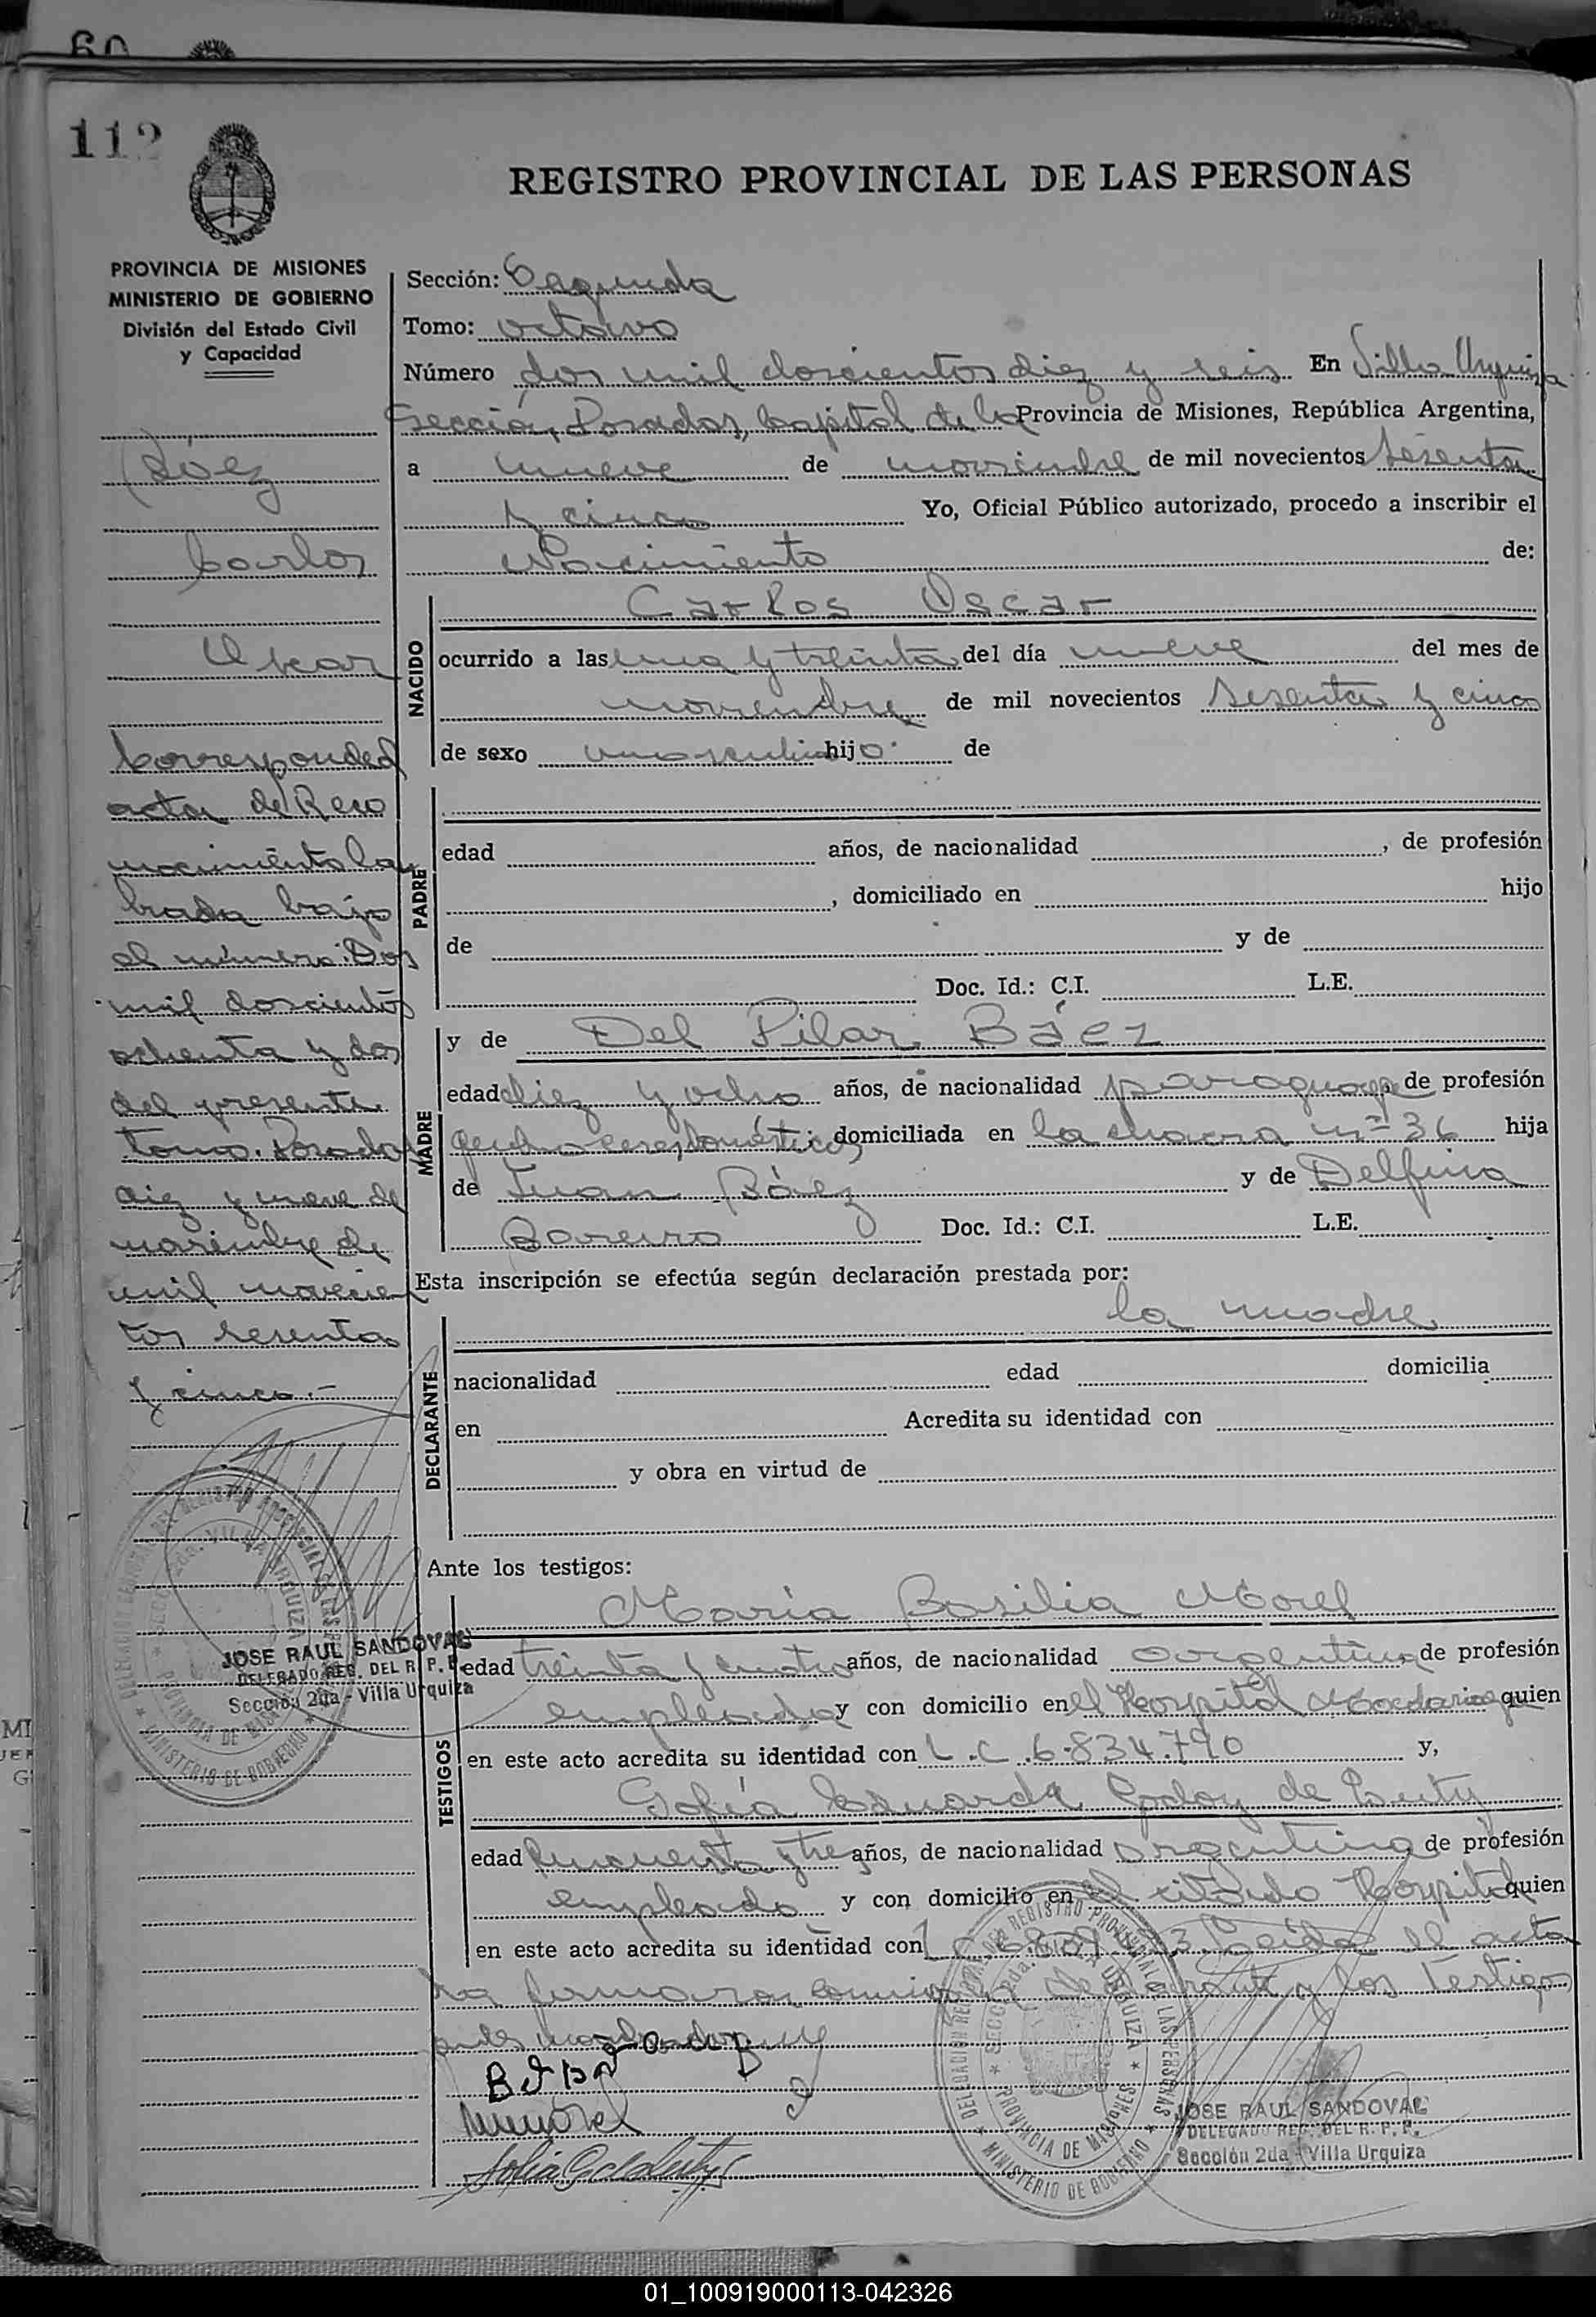 60
112
REGISTRO PROVINCIAL DE LAS PERSONAS
PROVINCIA DE MISIONES
MINISTERIO DE GOBIERNO
División del Estado Civil
y Capacidad
Báez
Carlos
Oscar
Corresponde al
acta de Reco
nocimiento la
brada bajo
el número: Dos
mil doscientos
ochenta y dos
del presente
tomo. Posadas
diez y nueve de
noviembre de
mil novecien
tos sesenta
y cinco.-
JOSE RAUL SANDOVAL
DELEGADO REG. DEL R. P. P.
Sección 2da - Villa Urquiza
Sección: Segunda
Tomo: octavo
Número dos mil doscientos diez y seis En Villa Urquiza
Sección, Posadas, Capital de la Provincia de Misiones, República Argentina,
a nueve de noviembre de mil novecientos sesenta
y cinco Yo, Oficial Público autorizado, procedo a inscribir el
Nacimiento de:
NACIDO
Carlos Oscar
ocurrido a las una y treinta del día nueve del mes de
noviembre de mil novecientos sesenta y cinco
de sexo masculino hijo de
PADRE
edad años, de nacionalidad , de profesión
, domiciliado en hijo
de y de
Doc. Id.: C.I. L.E.
MADRE
y de Del Pilar Báez
edad diez y ocho años, de nacionalidad paraguaya de profesión
quehaceres domésticos, domiciliada en la chacra nº 36 hija
de Juan Báez y de Delfina
Bareiro Doc. Id.: C.I. L.E.
Esta inscripción se efectúa según declaración prestada por:
DECLARANTE
la madre
nacionalidad edad domicilia
en Acredita su identidad con
y obra en virtud de
Ante los testigos:
TESTIGOS
María Basilia Morel
edad treinta y cuatro años, de nacionalidad argentina, de profesión
empleada y con domicilio en el Hospital Madariaga quien
en este acto acredita su identidad con L.C. 6.834.790 y,
Sofía Eduarda Godoy de
edad cincuenta y tres años, de nacionalidad argentina de profesión
empleada y con domicilio en el citado Hospital quien
en este acto acredita su identidad con Leída el acta
la firmaron conmigo la declarante y los testigos
antes
JOSE RAUL SANDOVAL
DELEGADO REG. DEL R. P. P.
Sección 2da - Villa Urquiza
01_100919000113-042326